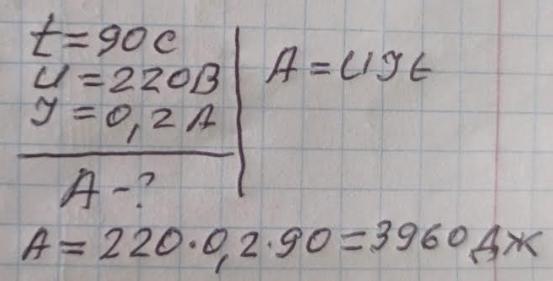 t=90с
U=220В
I=0,2А
A-?
A=UIt
A=220·0,2·90=3960Дж